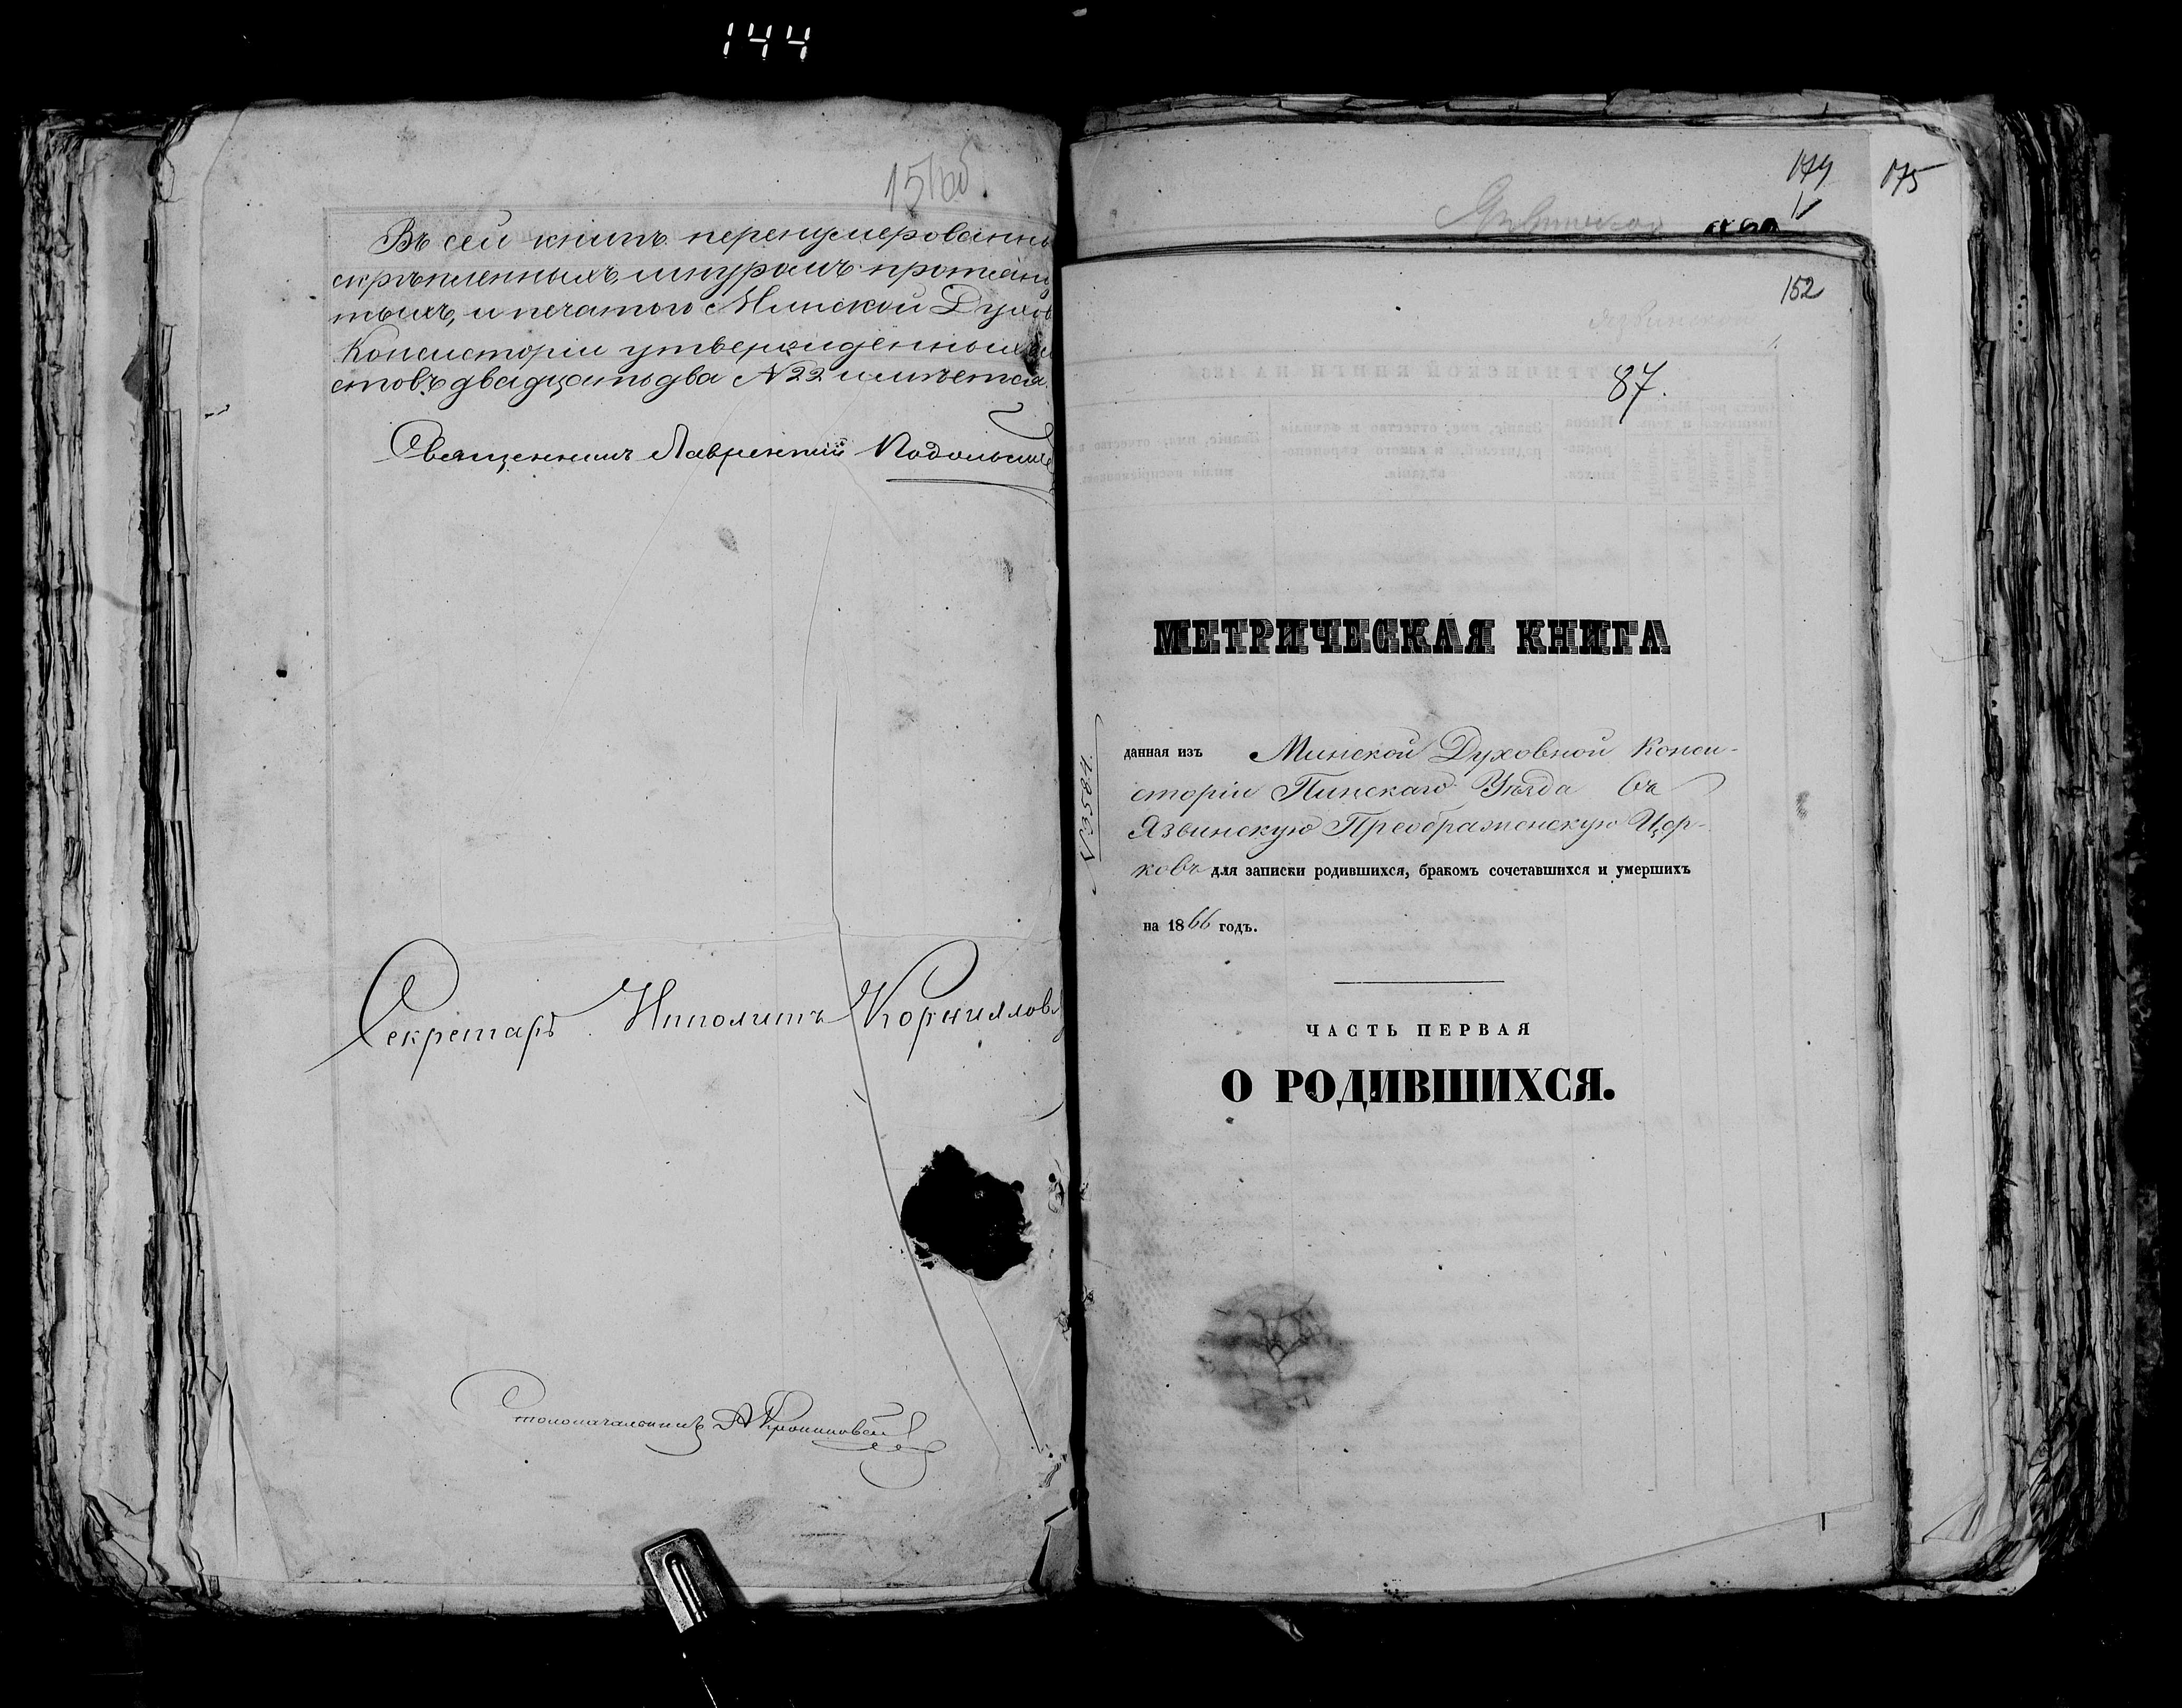 144
151об.
Въ сей книгѣ перенумерованны
скрѣпленныхъ, шнуромъ протяну
тыхъ, и печатью Минской Духов
Консисторіи утвержденныхъ ли
стовъ двадцать два № 22 имѣется.
Священникъ Лаврентій
Секретарь Иполитъ Корнилловъ
Столоначальникъ
174
175
152
87.
МЕТРИЧЕСКАЯ КНИГА
№ 3584.
данная изъ Минской Духовной Конси-
сторіи Пинскаго Уѣзда въ
Язвинскую Преображенскую Цер-
ковь для записки родившихся, бракомъ сочетавшихся и умершихъ
на 1866 годъ.
ЧАСТЬ ПЕРВАЯ
О РОДИВШИХСЯ.